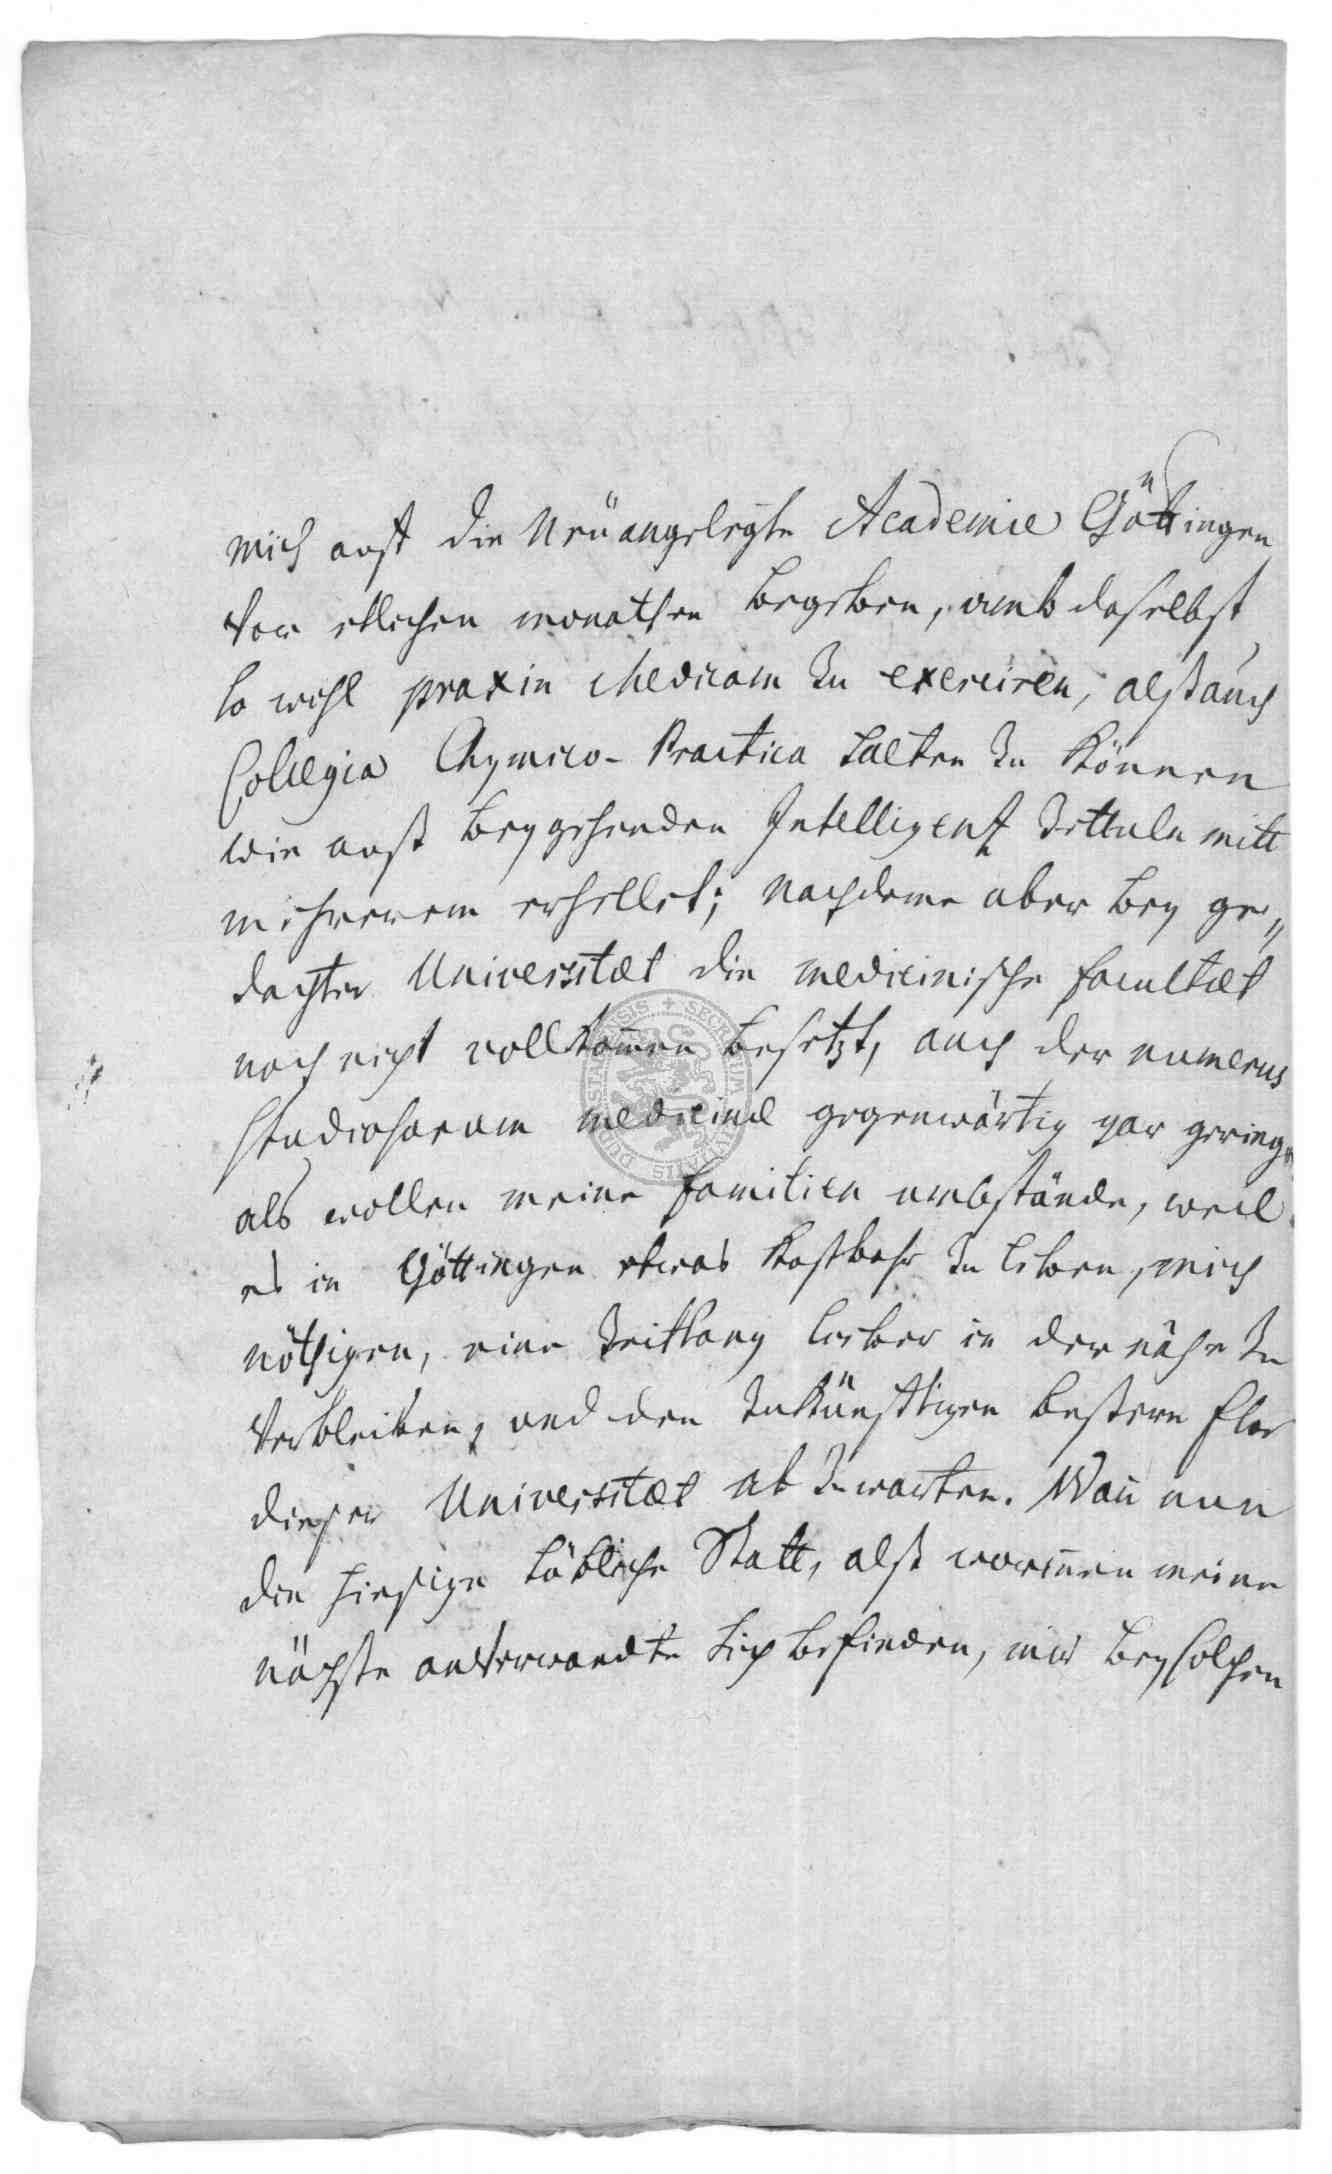 mich auff die Neüangelegte Academie Göttingen
vor etlichen monathen begeben, umb daselbst
so wohl praxin Medicam zu exerciren, alß auch
Collegia Chymico-Practica halten zu können
wie auß beygehenden Intelligentz Zettuln mitt
mehrerem erhellet; nachdeme aber bey ge„
dachter Universitæt die medicinische facultæt
noch nicht vollkom̄en besetzt, auch der numerus
studiosorum medicinæ gegenwärtig gar gering,
als wollen meine familien umbstände, weil
es in Göttingen etwas kostbahr zu leben, mich
nöthigen, eine Zeittlang lieber in der nähe zu
verbleiben, und den zukünfftigen bessern flor
dieser Universitæt ab zu warten. Wan̄ nun
die hiesige löbliche Statt, alß worin̄en meine
nächste anverwandte sich befinden, mir bey solchen
SECRETUM CIVITATIS DUDERSTADENSIS